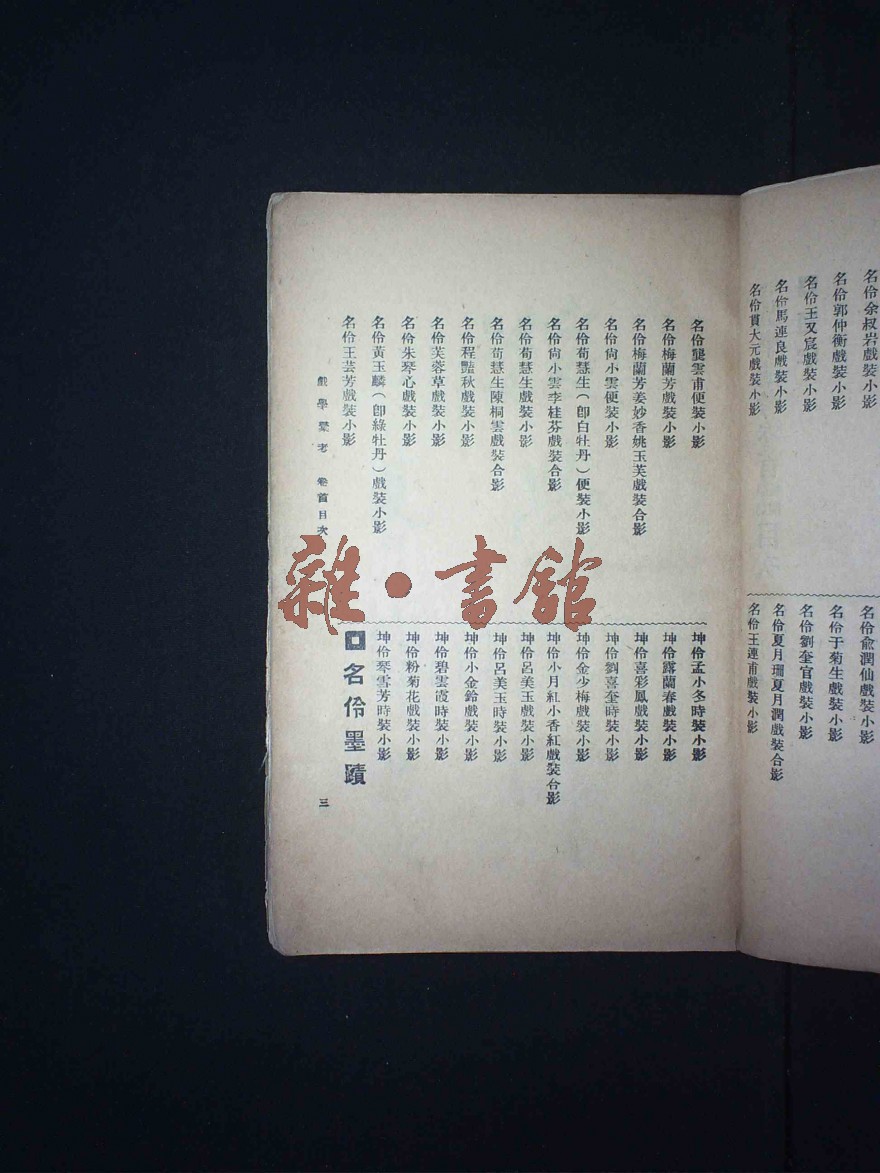 名伶余叔岩戲裝小影
名伶郭仲衡戲裝小影
名伶王又宸戲裝小影
名伶馬連良戲裝小影
名伶貫大元戲裝小影
名伶俞潤仙戲裝小影
名伶于菊生戲裝小影
名伶劉奎官戲裝小影
名伶夏月珊夏月潤戲裝合影
名伶王連甫戲裝小影
名伶龔雲甫便裝小影
名伶梅蘭芳戲裝小影
名伶梅蘭芳姜妙香姚玉芙戲裝合影
名伶尙小雲便裝小影
名伶荀慧生(卽白牡丹)便裝小影
名伶尙小雲李桂芬戲裝合影
名伶荀慧生戲裝小影
名伶荀慧生陳桐雲戲裝合影
名伶程豔秋戲裝小影
名伶芙蓉草戲裝小影
名伶朱琴心戲裝小影
名伶黃玉麟(卽綠牡丹)戲裝小影
名伶王芸芳戲裝小影
坤伶孟小冬時裝小影
坤伶露蘭春戲裝小影
坤伶喜彩鳳戲裝小影
坤伶劉喜奎時裝小影
坤伶金少梅戲裝小影
坤伶小月紅小香紅戲裝合影
坤伶呂美玉戲裝小影
坤伶呂美玉時裝小影
坤伶小金鈴戲裝小影
坤伶碧雲霞時裝小影
坤伶粉菊花戲裝小影
坤伶琴雪芳時裝小影
名伶墨蹟
戲學彙考 卷首目次
三
雜·書館